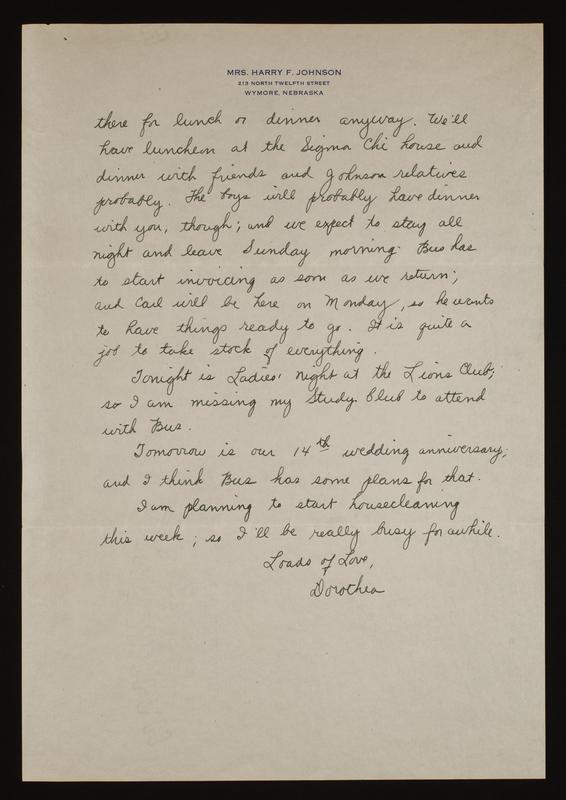 MRS. HARRY F. JOHNSON
213 NORTH TWELFTH STREET
WYMORE, NEBRASKA
there for lunch or dinner anyway. We'll
have luncheon at the Sigma Chi house and
dinner with friends and Johnson relatives
probably. The boys will probably have dinner
with you, though; and we expect to stay all
night and leave Sunday morning. Bus has
to start invoicing as soon as we return;
and Carl will be here on Monday, so he wants
to have things ready to go. It is quite a
job to take stock of everything.
Tonight is Ladies' night at the Lions Club;
so I am missing my Study Club to attend
with Bus.
Tomorrow is our 14th wedding anniversary;
and I think Bus has some plans for that.
I am planning to start housecleaning
this week; so I'll be really busy for awhile.
Loads of Love,
Dorothea